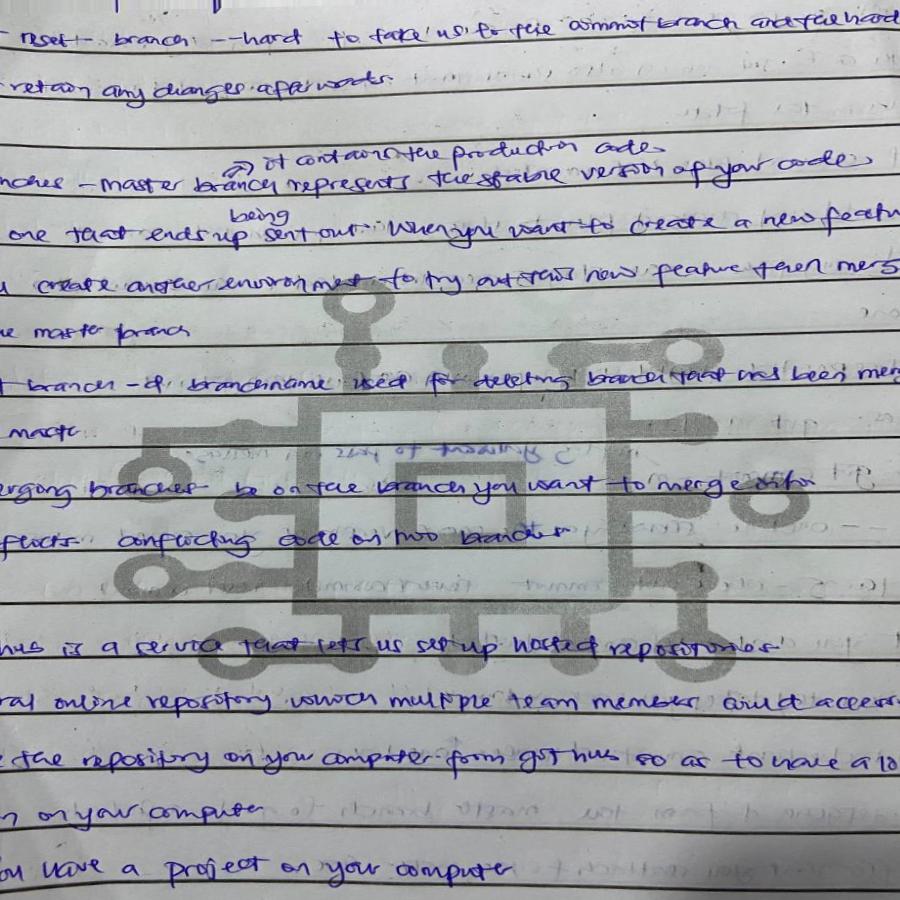 reset - branch --hard to take us to the commit branch and the hard
retain any changes afterwards.
it contains the production code
nches - master branch represents the stable version of your code,
being
one that ends up sent out. When you want to create a new featu
u create another environment to try out this new feature then merg
he master branch
t branch -d branchname used for deleting branch that has been mer
erging branches be on the branch you want to merge
flicts conflicting code on two branches
hub is a service that lets us set up hosted repositories
ral online repository which multiple team members access
the repository on your computer from git hub so as to have a lo
n on your computer
ou have a project on your computer